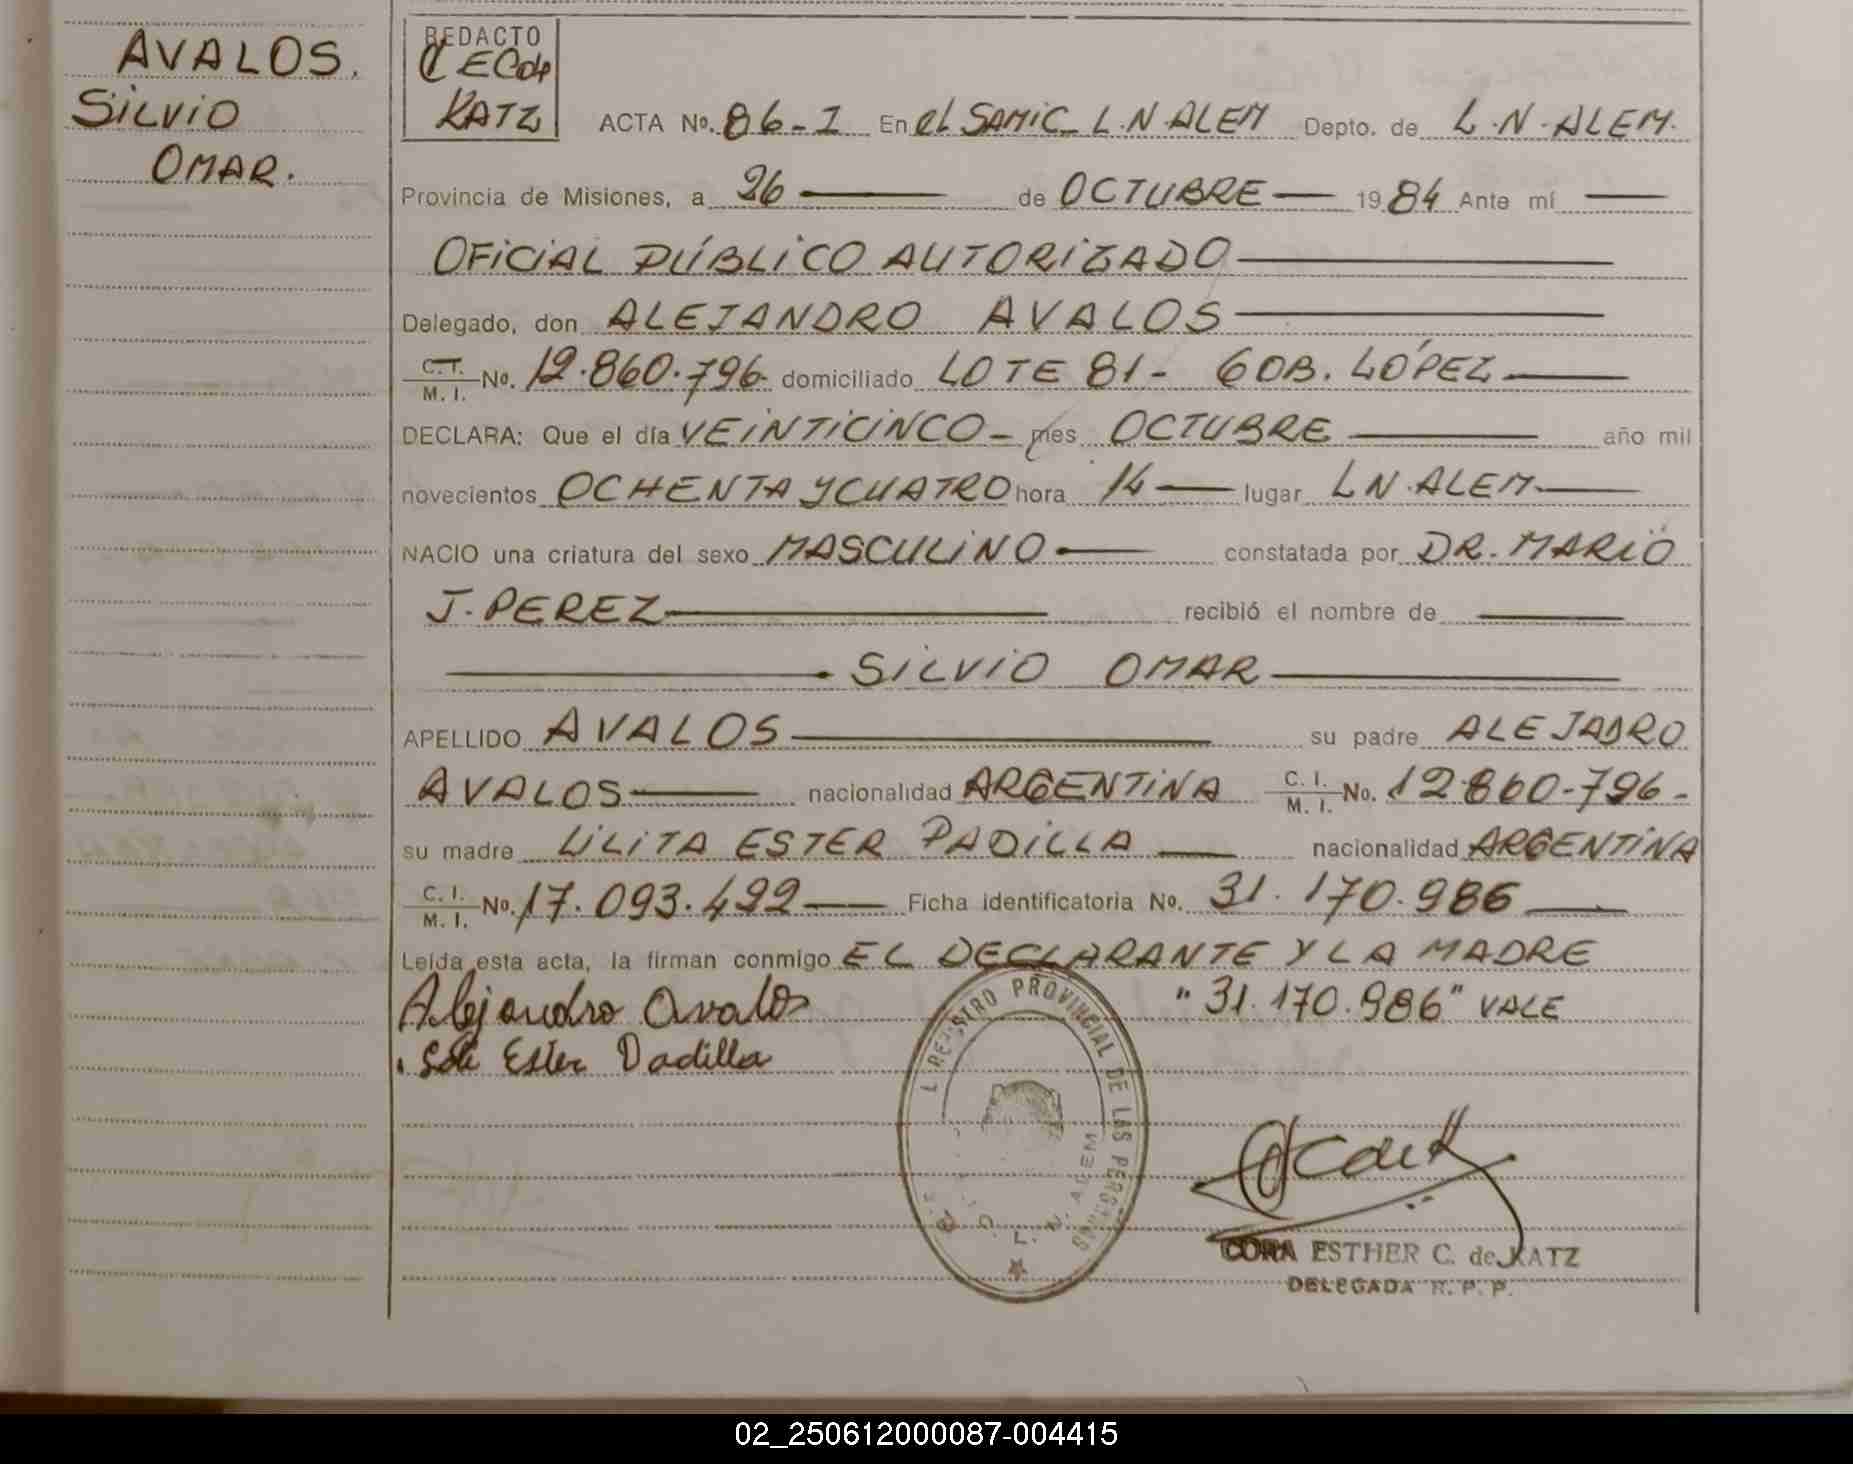 AVALOS.
SILVIO
OMAR.
REDACTO
CECde
KATZ
ACTA Nº. 86-I En el SAMIC L.N ALEM Depto. de L.N.ALEM.
Provincia de Misiones, a 26 de OCTUBRE 1984 Ante mí
OFICIAL PÚBLICO AUTORIZADO
Delegado, don ALEJANDRO AVALOS
C.I. M. I. Nº. 12.860.796 domiciliado LOTE 81- GOB. LÓPEZ
DECLARA: Que el día VEINTICINCO - mes OCTUBRE año mil
novecientos OCHENTA Y CUATRO hora 14 lugar L N.ALEM.
NACIO una criatura del sexo MASCULINO constatada por DR. MARIO
J. PEREZ recibió el nombre de
SILVIO OMAR
APELLIDO AVALOS su padre ALEJADRO
AVALOS nacionalidad ARGENTINA C. I. M. I. Nº. 12.860-796-
su madre LILITA ESTER PADILLA nacionalidad ARGENTINA
C. I. M. I. Nº. 17.093.499 Ficha identificatoria Nº. 31.170.986
Leída esta acta, la firman conmigo EL DECLARANTE Y LA MADRE
Alejandro Avalos "31.170.986" VALE
Ester Padilla
REGISTRO PROVINCIAL DE LAS PERSONAS
L. N. ALEM
CORA ESTHER C. de KATZ
DELEGADA R. P. P.
02_250612000087-004415